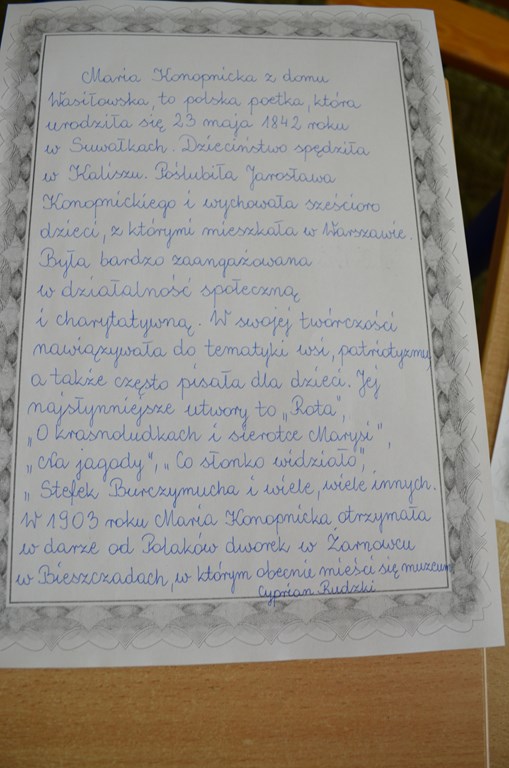 Maria Konopnicka z domu
Wasiłowska, to polska poetka, która
urodziła się 23 maja 1842 roku
w Suwałkach. Dzieciństwo spędziła
w Kaliszu. Poślubiła Jarosława
Konopnickiego i wychowała sześcioro
dzieci, z którymi mieszkała w Warszawie.
Była bardzo zaangażowana
w działalność społeczną
i charytatywną. W swojej twórczości
nawiązywała do tematyki wsi, patriotyzmu,
a także często pisała dla dzieci. Jej
najsłynniejsze utwory to „Rota”,
„O krasnoludkach i sierotce Marysi”,
„Na jagody”, „Co słonko widziało”,
„Stefek Burczymucha i wiele, wiele innych.
W 1903 roku Maria Konopnicka otrzymała
w darze od Polaków dworek w Żarnowcu
w Bieszczadach, w którym obecnie mieści się muzeum
Cyprian Rudzki